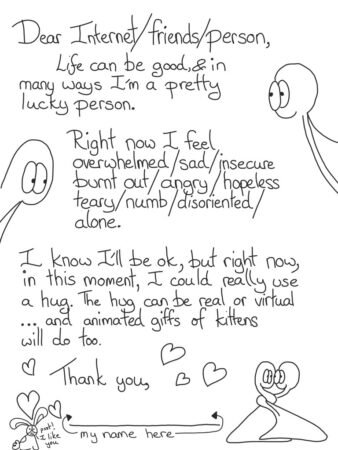 Dear Internet/friends/person,
Life can be good, & in
many ways I'm a pretty
lucky person.
Right now I feel
overwhelmed/sad/insecure
burnt out/angry/hopeless
teary/numb/disoriented/
alone.
I know I'll be ok, but right now,
in this moment, I could really use
a hug. The hug can be real or virtual
... and animated giffs of kittens
will do too.
Thank you,
psst!
I like
you
my name here